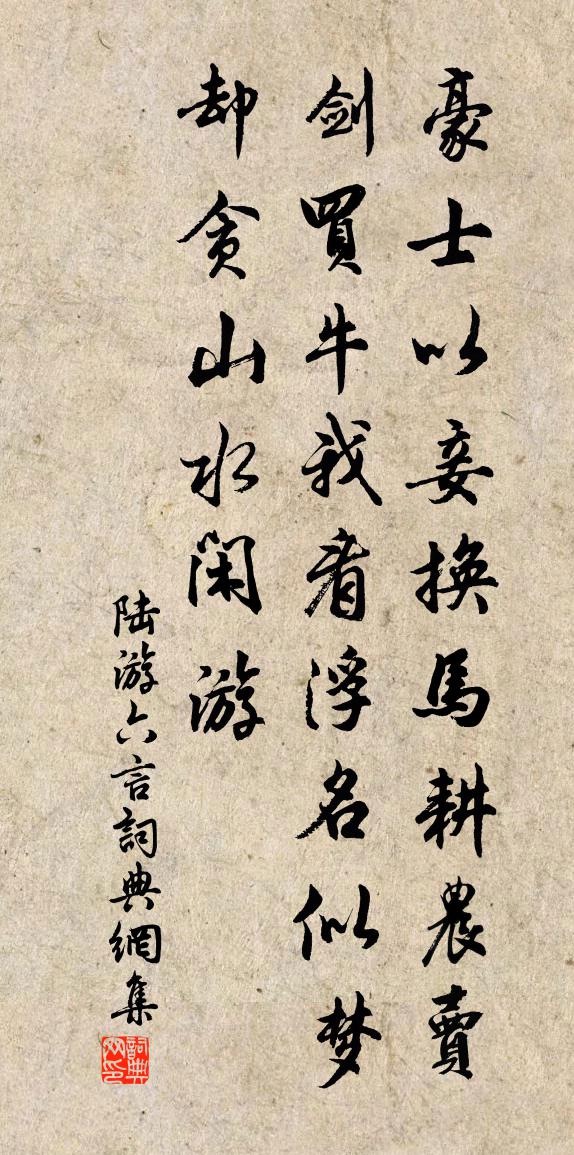 豪士以妾換馬耕農賣
劍買牛我看浮名似梦
却貪山水閑游
陆游六言詞典網集
詞典网印